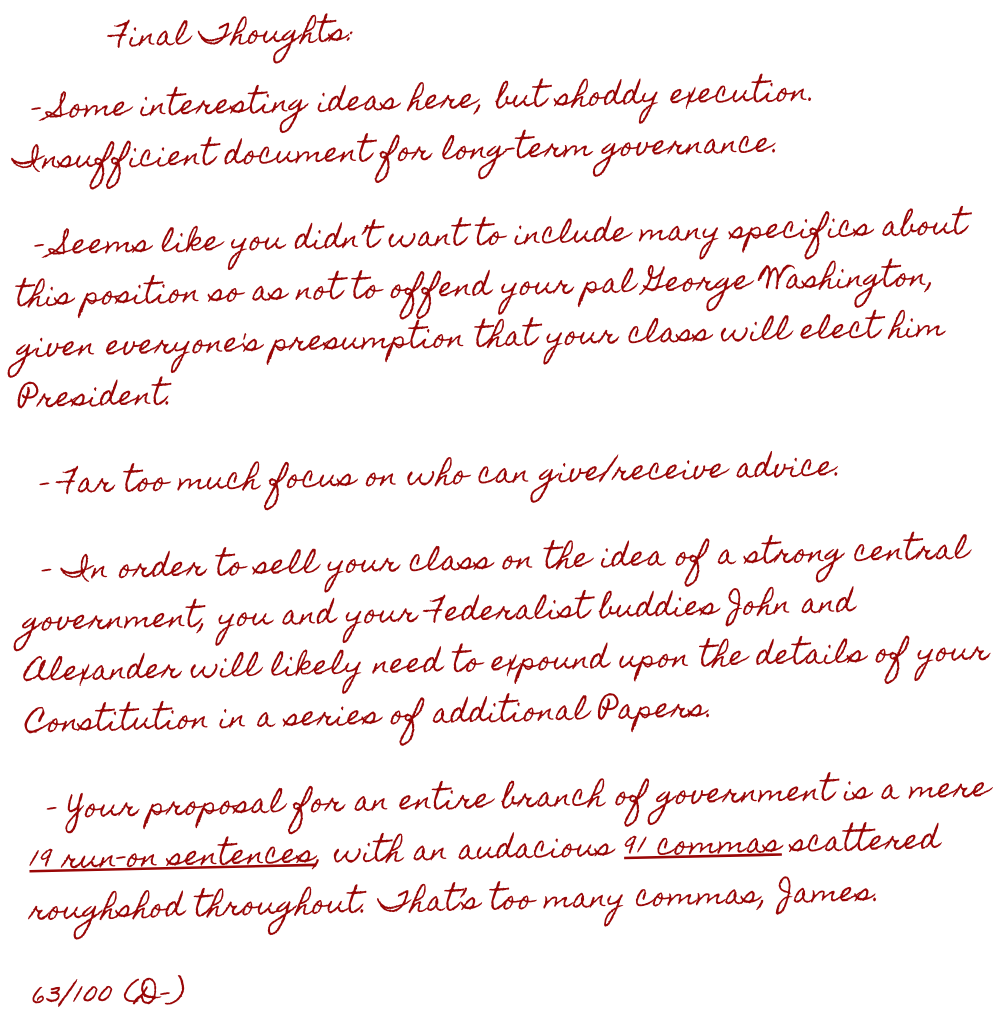 Final Thoughts:
-Some interesting ideas here, but shoddy execution.
Insufficient document for long-term governance.
-Seems like you didn't want to include many specifics about
this position so as not to offend your pal George Washington,
given everyone's presumption that your class will elect him
President.
-Far too much focus on who can give/receive advice.
- In order to sell your class on the idea of a strong central
government, you and your Federalist buddies John and
Alexander will likely need to expound upon the details of your
Constitution in a series of additional Papers.
- Your proposal for an entire branch of government is a mere
19 run-on sentences, with an audacious 91 commas scattered
roughshod throughout. That's too many commas, James.
63/100 (D-)